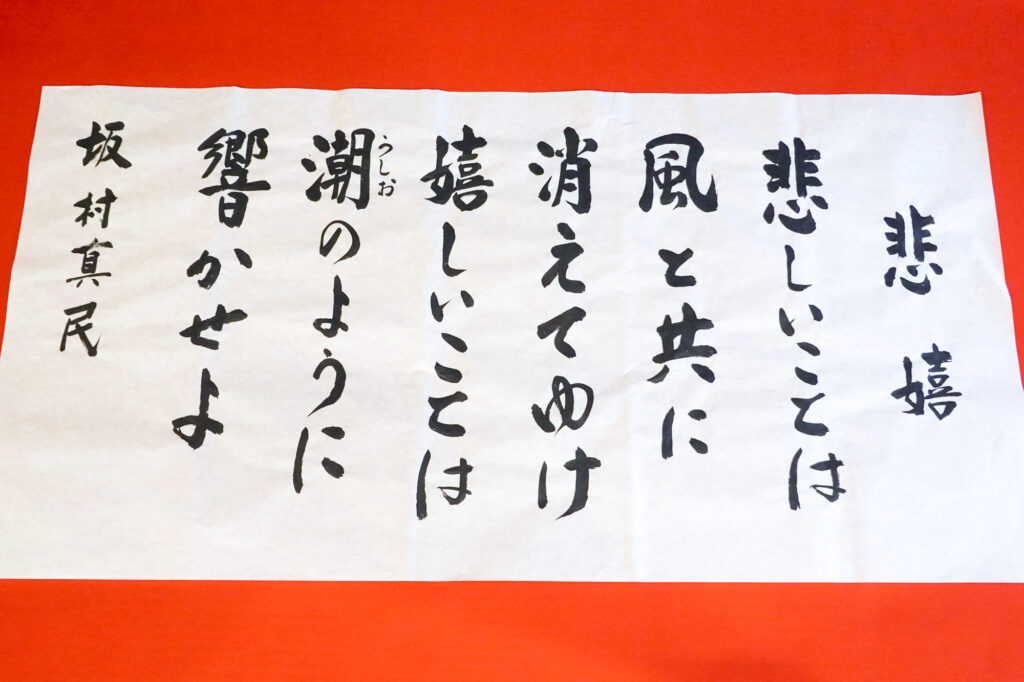 悲嬉
悲しいことは
風と共に
消えてゆけ
嬉しいことは
潮のように
うしお
響かせよ
坂村真民